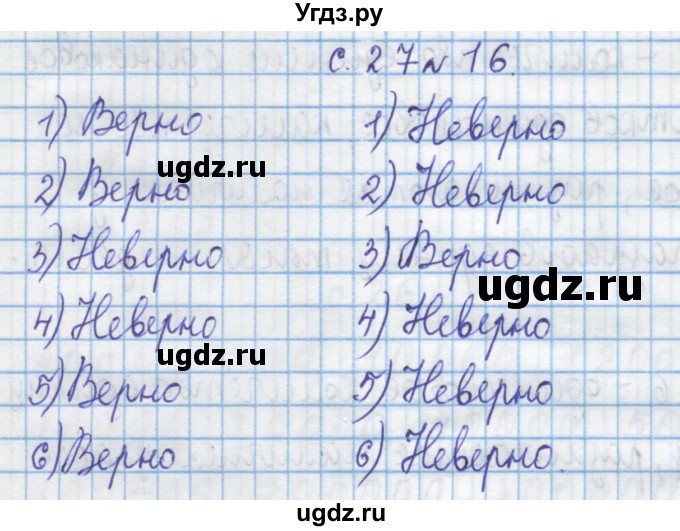 Угдз.ру
с. 27 № 16.
1) Верно
2) Верно
3) Неверно
4) Неверно
5) Верно
6) Верно
1) Неверно
2) Неверно
3) Верно
4) Неверно
5) Неверно
6) Неверно.
ugdz.ru
ugdz.ru
ugdz.ru
ugdz.ru